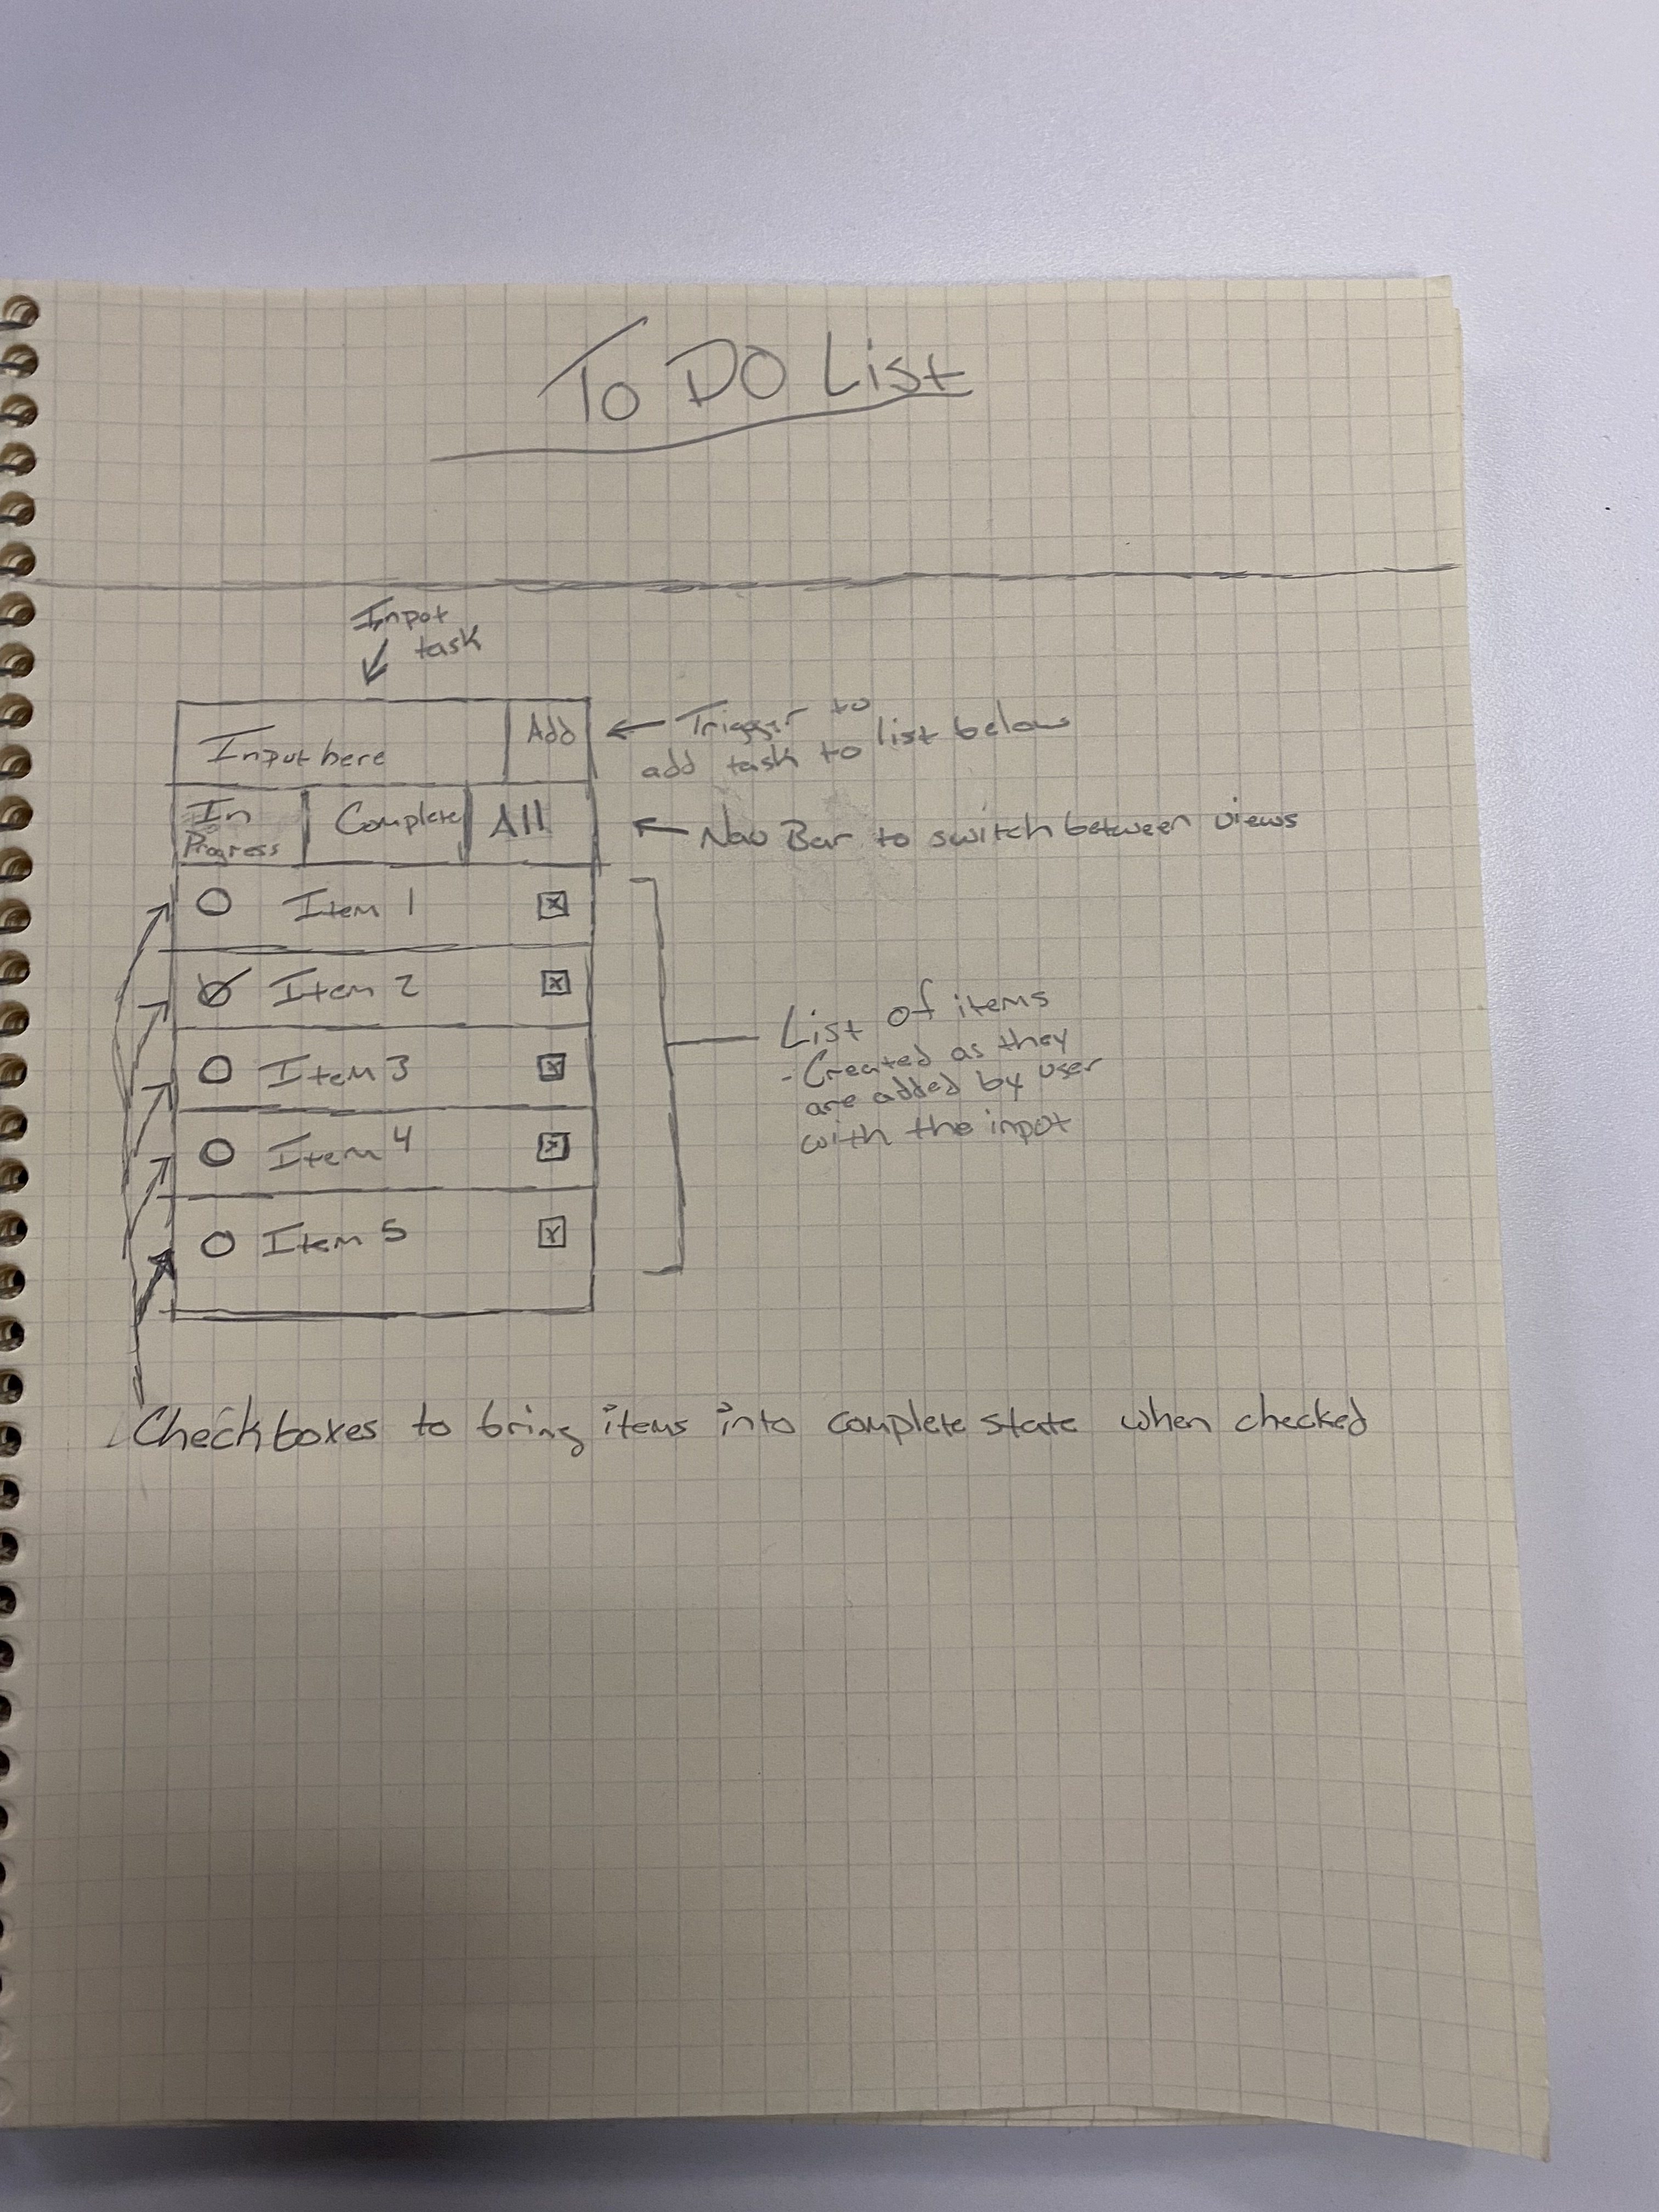 To DO List
Input
task
Input here
Add
Trigger to
add task to list below
In
Progress
Complete
All
Nav Bar to switch between views
Item 1
x
Item 2
x
Item 3
x
Item 4
x
Item 5
x
List of items
- Created as they
are added by user
with the input
Checkboxes to bring items into complete state when checked